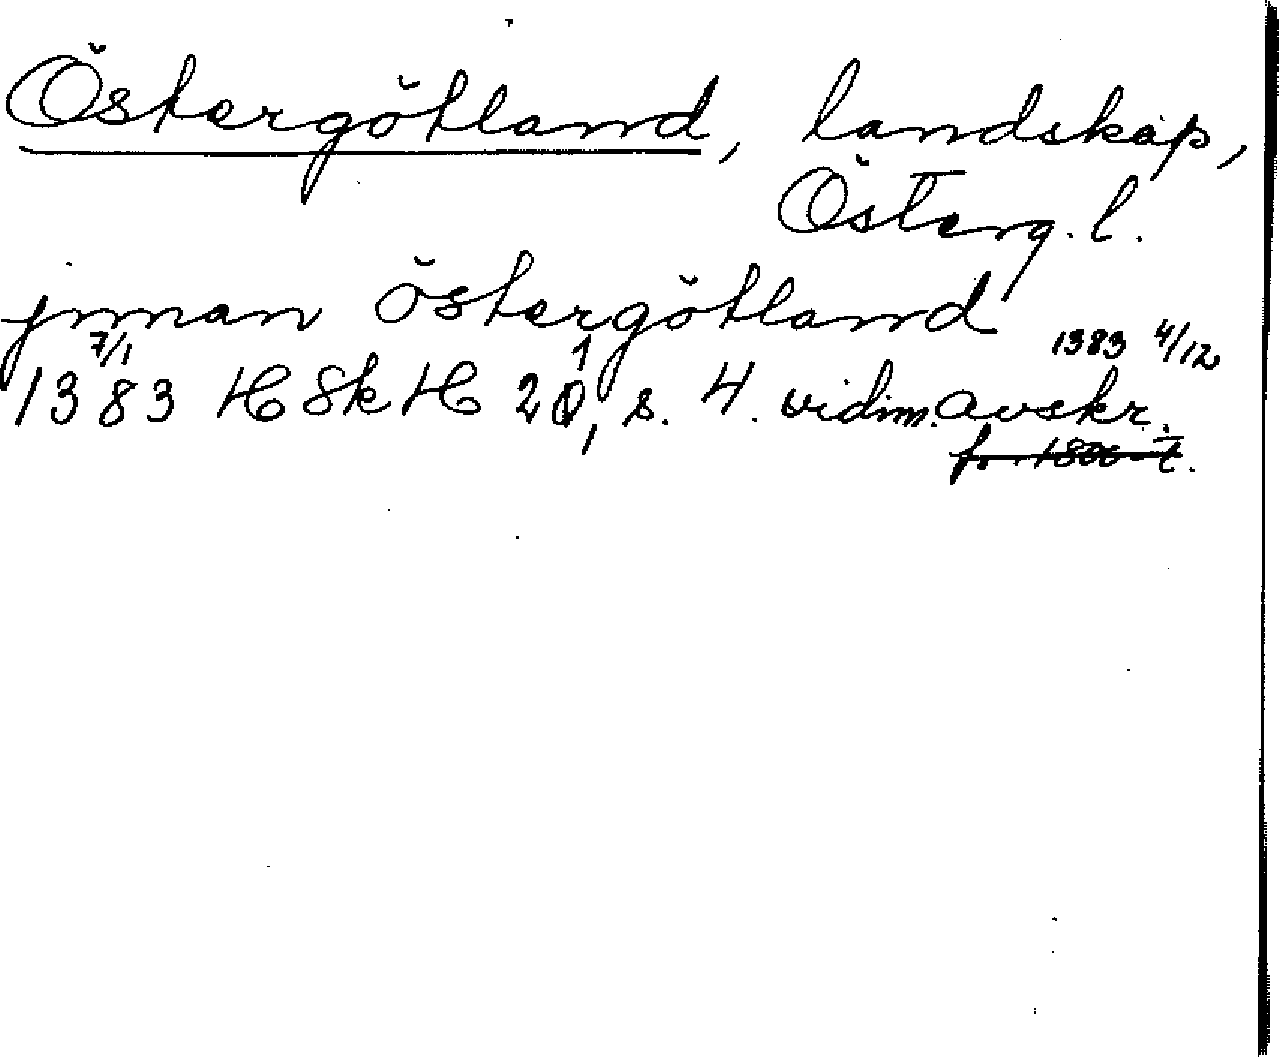 Östergötland, landskap,
Österg. l.
jnnan östergötland
1383 7/1 HSkH 20,1 s. 4. vidim. avskr. 1383 4/12
fr. 1800-t.